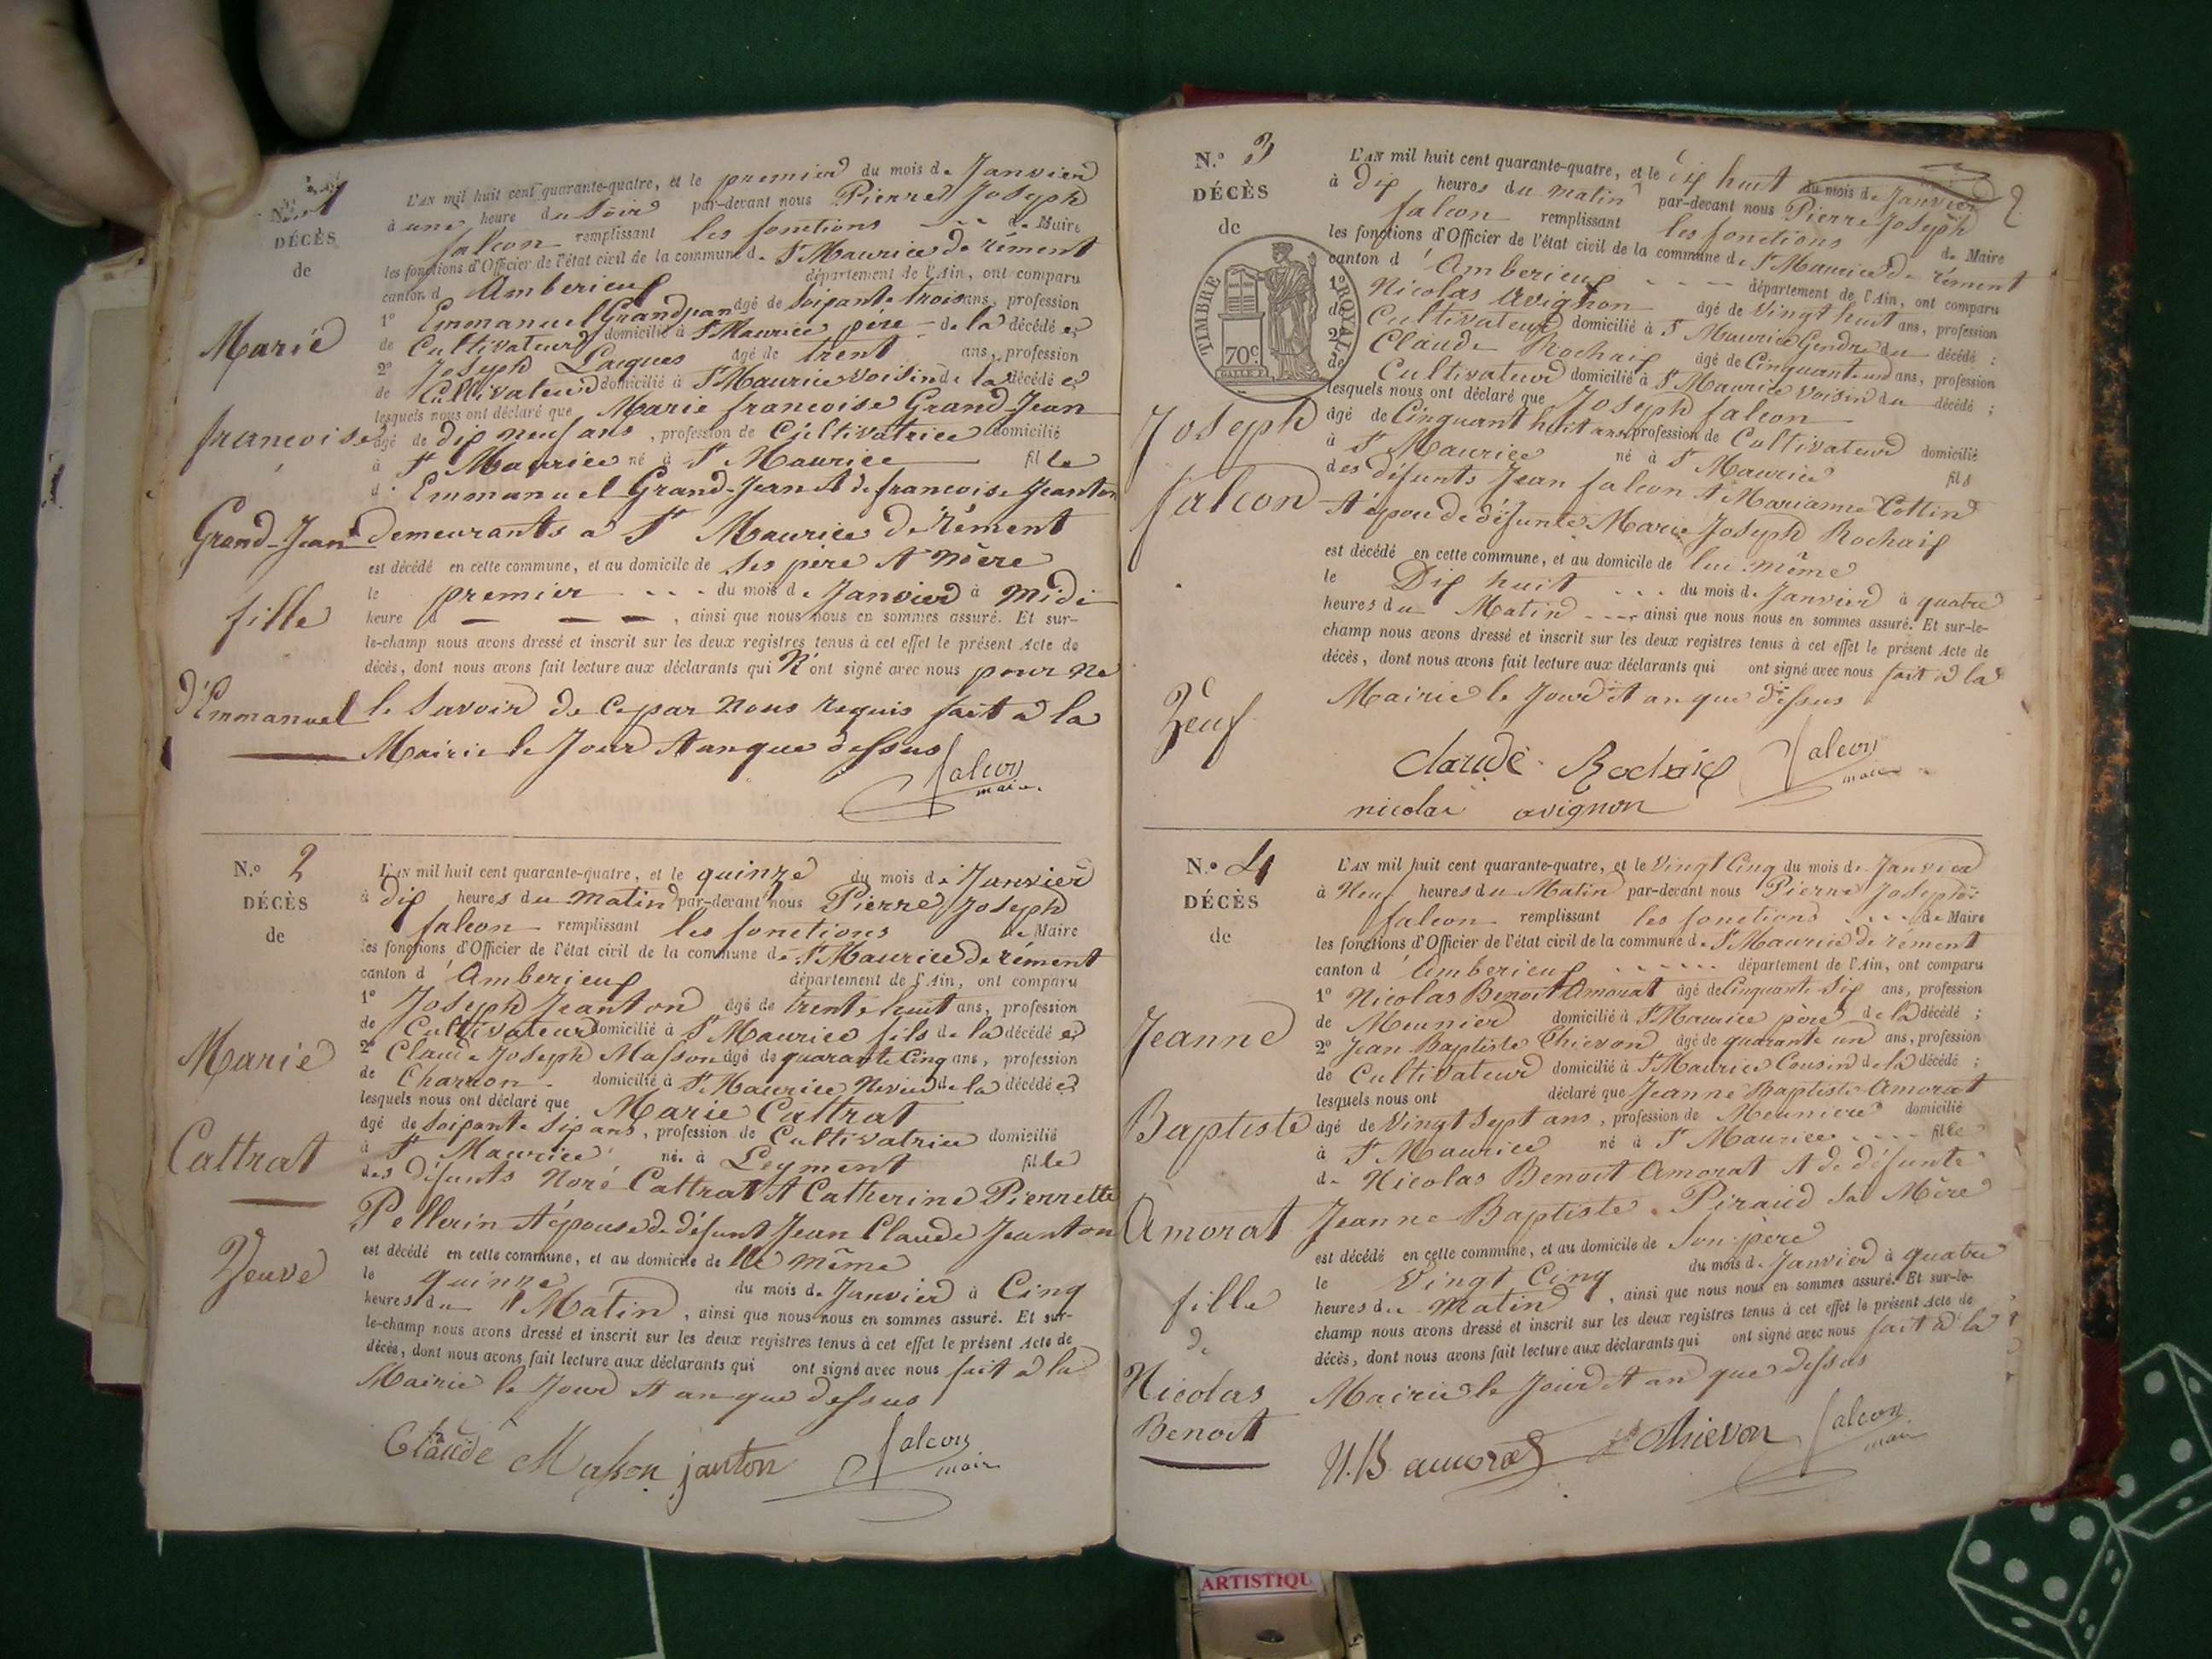 N.º 1
DÉCÈS
de
Marie
francoise
Grand-Jean
fille
d'Emmanuel
L'AN mil huit cent quarante-quatre, et le premier du mois de Janvier
à une heure du Soir par-devant nous Pierre Joseph
falcon remplissant les fonctions de Maire
les fonctions d'Officier de l'état civil de la commune de St Maurice de rément
canton d'Amberieux département de l'Ain, ont comparu
1º Emmanuel Grandjean âgé de Soixante trois ans, profession
de Cultivateur domicilié à St Maurice père de la décédée
2º Joseph Laques âgé de trent ans, profession
de Cultivateur domicilié à St Maurice voisin de la décédée
lesquels nous ont déclaré que Marie francoise Grand-Jean
âgé de dix neuf ans, profession de Cultivatrice domicilié
à St Maurice né à St Maurice fille
d'Emmanuel Grand-Jean et de francoise Jeanton
demeurants a St Maurice de Rément
est décédé en cette commune, et au domicile de Ses père et mère
le premier du mois de Janvier à midi
heure d , ainsi que nous nous en sommes assuré. Et sur-
le-champ nous avons dressé et inscrit sur les deux registres tenus à cet effet le présent Acte de
décès, dont nous avons fait lecture aux déclarants qui N'ont signé avec nous pour ne
le Savoir de ce par nous requis fait a la
Mairie le Jour et an que dessus
falcon
maire
N.º 2
DÉCÈS
de
Marie
Cattrat
Veuve
L'AN mil huit cent quarante-quatre, et le quinze du mois de Janvier
à dix heures du matin par-devant nous Pierre Joseph
falcon remplissant les fonctions de Maire
les fonctions d'Officier de l'état civil de la commune de St Maurice de rément
canton d'Amberieux département de l'Ain, ont comparu
1º Joseph Jeanton âgé de trente huit ans, profession
de Cultivateur domicilié à St Maurice fils de la décédée
2º Claude Joseph Masson âgé de quarante Cinq ans, profession
de Charron domicilié à St Maurice Neveu de la décédée
lesquels nous ont déclaré que Marie Cattrat
âgé de Soixante Six ans, profession de Cultivatrice domicilié
à St Maurice né à Leyment fille
des défunts Noré Cattrat et Catherine Pierrette
Pellerin et épouse de défunt Jean Claude Jeanton
est décédé en cette commune, et au domicile de Elle même
le quinze du mois de Janvier à Cinq
heures du Matin, ainsi que nous nous en sommes assuré. Et sur-
le-champ nous avons dressé et inscrit sur les deux registres tenus à cet effet le présent Acte de
décès, dont nous avons fait lecture aux déclarants qui ont signé avec nous fait a la
Mairie le Jour et an que dessus
Claude Masson janton falcon
maire
N.º 3
DÉCÈS
de
TIMBRE ROYAL
70c.
Joseph
falcon
Veuf
2
L'AN mil huit cent quarante-quatre, et le dix huit du mois de Janvier
à Dix heures du matin par-devant nous Pierre Joseph
falcon remplissant les fonctions de Maire
les fonctions d'Officier de l'état civil de la commune de St Maurice de rément
canton d'Amberieux département de l'Ain, ont comparu
1º Nicolas Avignon âgé de Vingt huit ans, profession
de Cultivateur domicilié à St Maurice Gendre du décédé :
2º Claude Rochaix âgé de Cinquante un ans, profession
de Cultivateur domicilié à St Maurice voisin du décédé ;
lesquels nous ont déclaré que Joseph falcon
âgé de Cinquant huit ans profession de Cultivateur domicilié
à St Maurice né à St Maurice fils
des défunts Jean falcon et Marianne Cottin
et époux de défunte Marie Joseph Rochaix
est décédé en cette commune, et au domicile de lui même
le Dix huit du mois de Janvier à quatre
heures du Matin ainsi que nous nous en sommes assuré. Et sur-le-
champ nous avons dressé et inscrit sur les deux registres tenus à cet effet le présent Acte de
décès, dont nous avons fait lecture aux déclarants qui ont signé avec nous fait a la
Mairie le Jour et an que dessus
claude Rochaix falcon
maire
nicolas avignon
N.º 4
DÉCÈS
de
Jeanne
Baptiste
Amorat
fille
de
Nicolas
Benoit
L'AN mil huit cent quarante-quatre, et le Vingt Cinq du mois de Janvier
à Neuf heures du Matin par-devant nous Pierre Joseph
falcon remplissant les fonctions de Maire
les fonctions d'Officier de l'état civil de la commune de St Maurice de rément
canton d'Amberieux département de l'Ain, ont comparu
1º Nicolas Benoit Amorat âgé de Cinquante Six ans, profession
de Meunier domicilié à St Maurice père de la décédé ;
2º Jean Baptiste Thievon âgé de quarante un ans, profession
de Cultivateur domicilié à St Maurice Cousin de la décédé ;
lesquels nous ont déclaré que Jeanne Baptiste Amorat
âgé de Vingt Sept ans, profession de Meuniere domicilié
à St Maurice né à St Maurice fille
de Nicolas Benoit Amorat et de défunte
Jeanne Baptiste Piraud Sa Mère
est décédé en cette commune, et au domicile de Son père
le Vingt Cinq du mois de Janvier à quatre
heures du matin, ainsi que nous nous en sommes assuré. Et sur-le-
champ nous avons dressé et inscrit sur les deux registres tenus à cet effet le présent Acte de
décès, dont nous avons fait lecture aux déclarants qui ont signé avec nous fait a la
Mairie le Jour et an que dessus
N.B amorat Thievon falcon
maire
ARTISTIQU